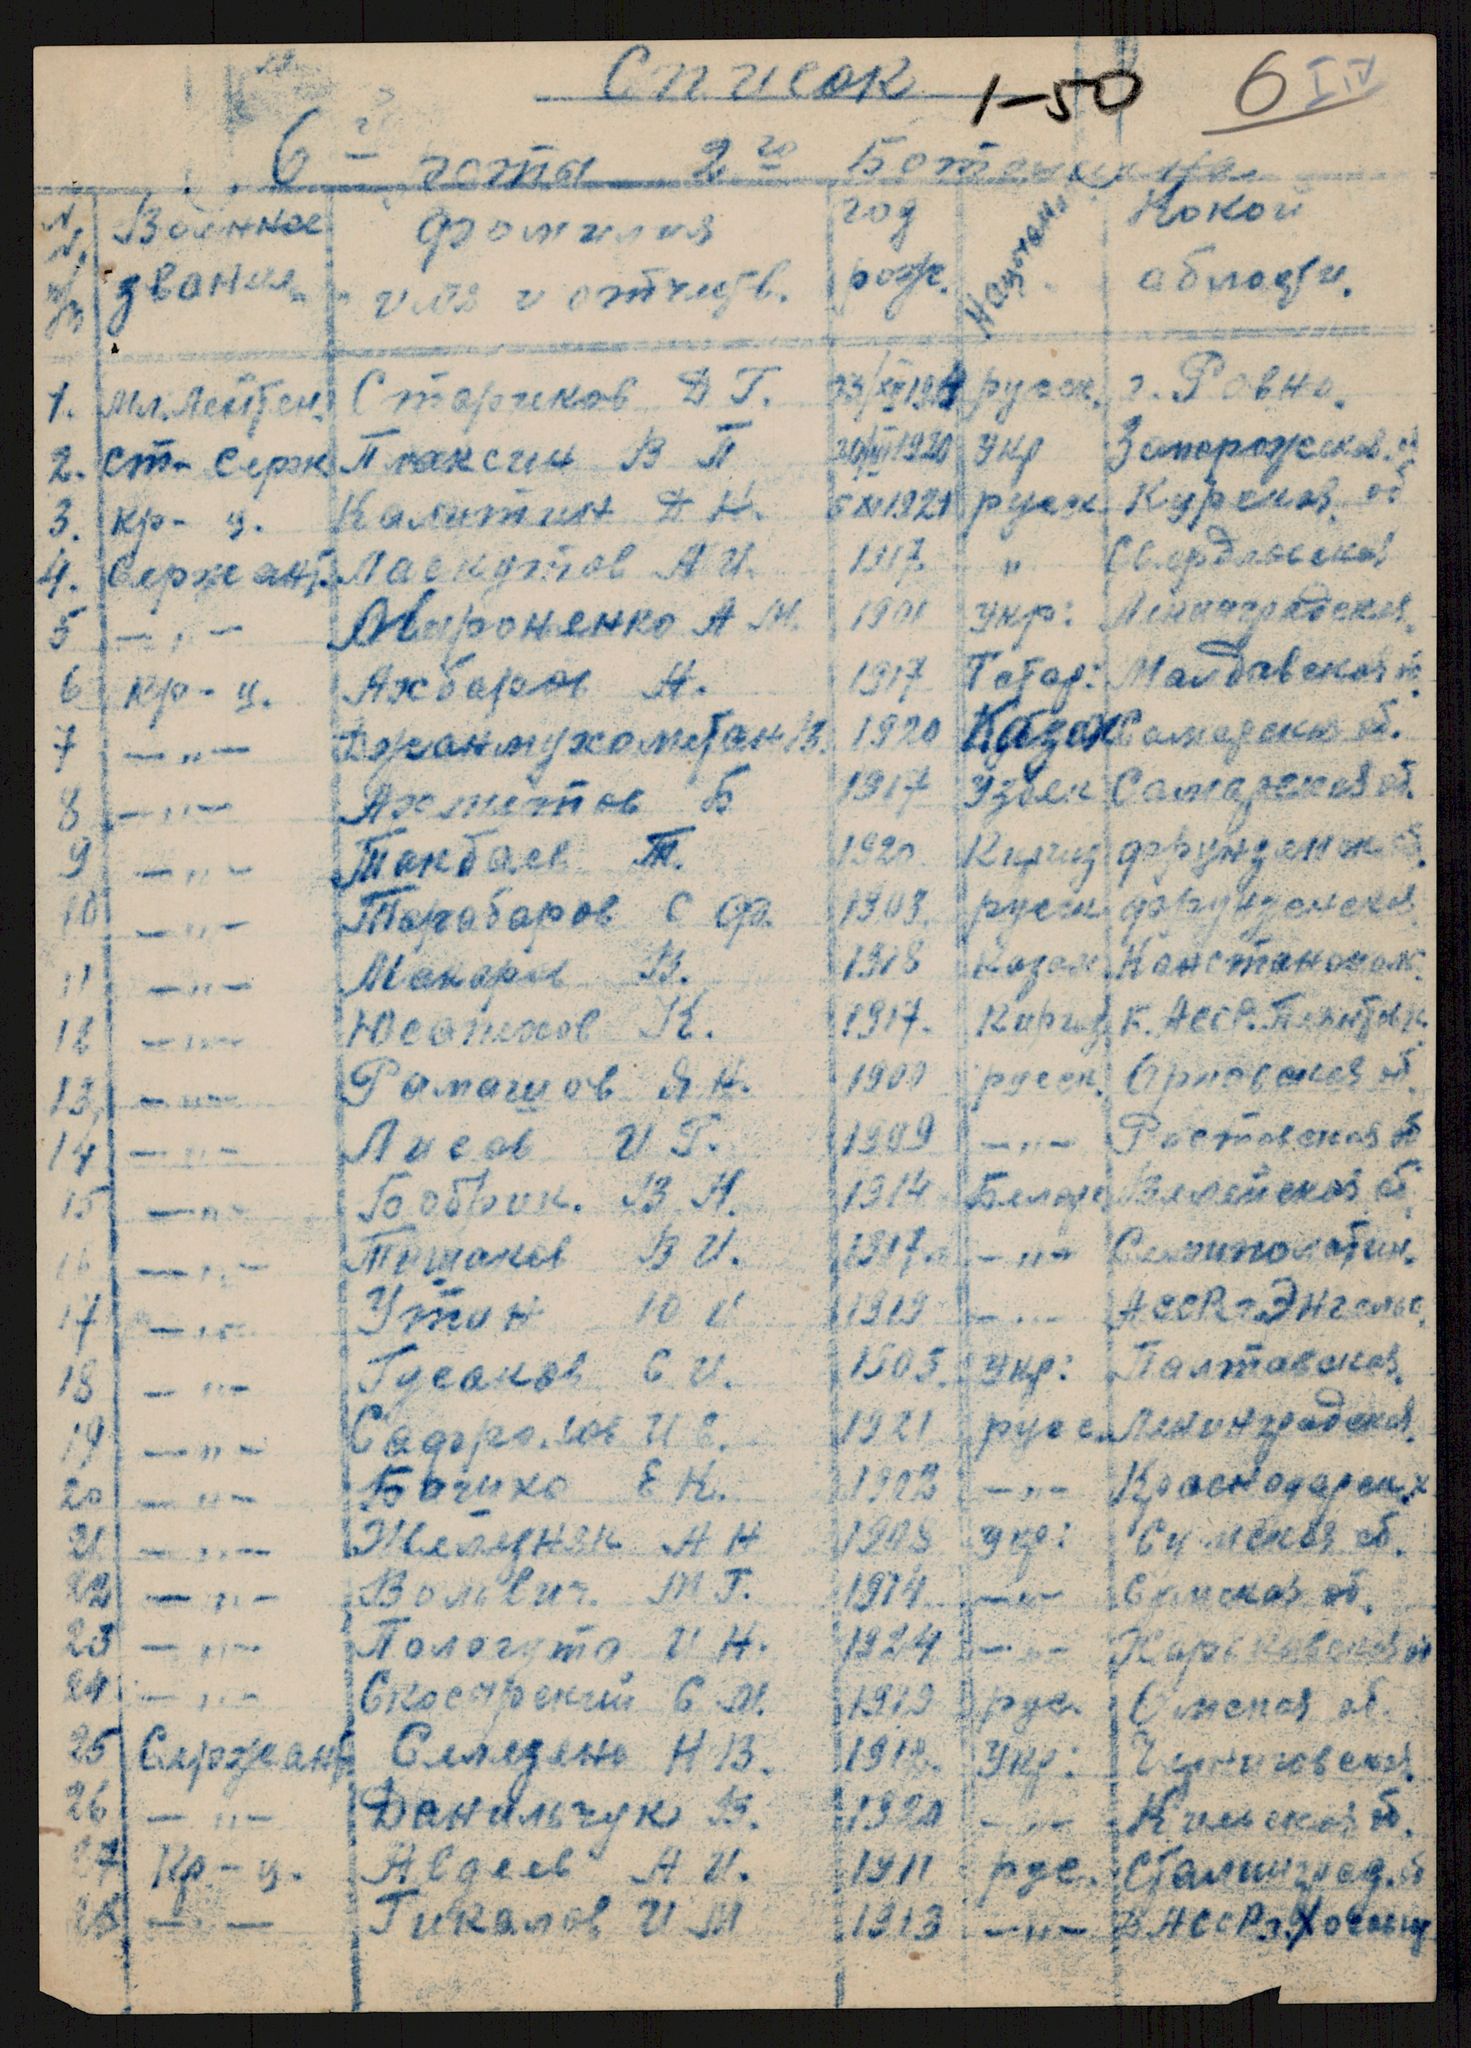 Список 1-50 6 IV
6й роты 2гоБотальона
N N п/п Военное звания Фомилия имя и отчеств. год рож. Национ. Кокой области.
1. Мл. Лейтен. Стариков Д Г. 23/XII 1914 русск. г. Ровно.
2. ст- серж Плаксин В П 1920 Укр Запорожской. об
3. кр- ц. Калитин Д Н. 1921 русск Курской об
4. Сержант. Ласкутов А И. 1917 " Свердловской
5 — " — Мироненко А М. 1901 укр: Ленинградская.
6 кр- ц. Ахбаров А. 1917 Татар: Малдавской об.
7 — " — Джанмухометан 1920 Казах Самарской об.
8 — " — Ахметов Б 1917 Узбек Самарской об.
9 — " — Такбаев Т. 1920 Киргиз Фрунзенск об.
10 — " — Тарабаров С Ф. 1903. русск Фрунзенской
11 — " — Макаров В. 1918 Казах
12 — " — Юсопихов К. 1917. Киргиз К. АССР.
13, — " — Рамашов Я Н. 1900 русск. Орловской об.
14 — " — Лисов И Г. 1909 — " — Ростовской об
15 — " — Бобрик. В Н. 1914 Белор. Вилейской об
16 — " — Тишаков В И. 1917. — " — Семиполатин.
17 — " — Утан Ю И 1919 — " — АССР г. Энгельс.
18 — " — Гусаков С И. 1905. Укр: Палтавской.
19 — " — Сафронов И С. 1921 русс. Ленинградской.
20 — " — Бочихо Е К. 1903 — " — Краснодарск. к
21 — " — Железняк А Н 1908 укр: Сумской об.
22 — " — Вольвич. М Г. 1914 — " — Сумской об.
23 — " — Пологуто И Н. 1924 — " — Харьковской об
24 — " — Скосарский С М. 1919 рус. Омской об.
25 Сержант Селезень Н В. 1918. Укр: Черниговской.
26 — " — Данильчук В. 1920 — " — Киевской об.
27 Кр- ц. Авдеев А И. 1911 рус. Сталинград. об
28 — " — Гикалов И М 1913 — " — АССР г.